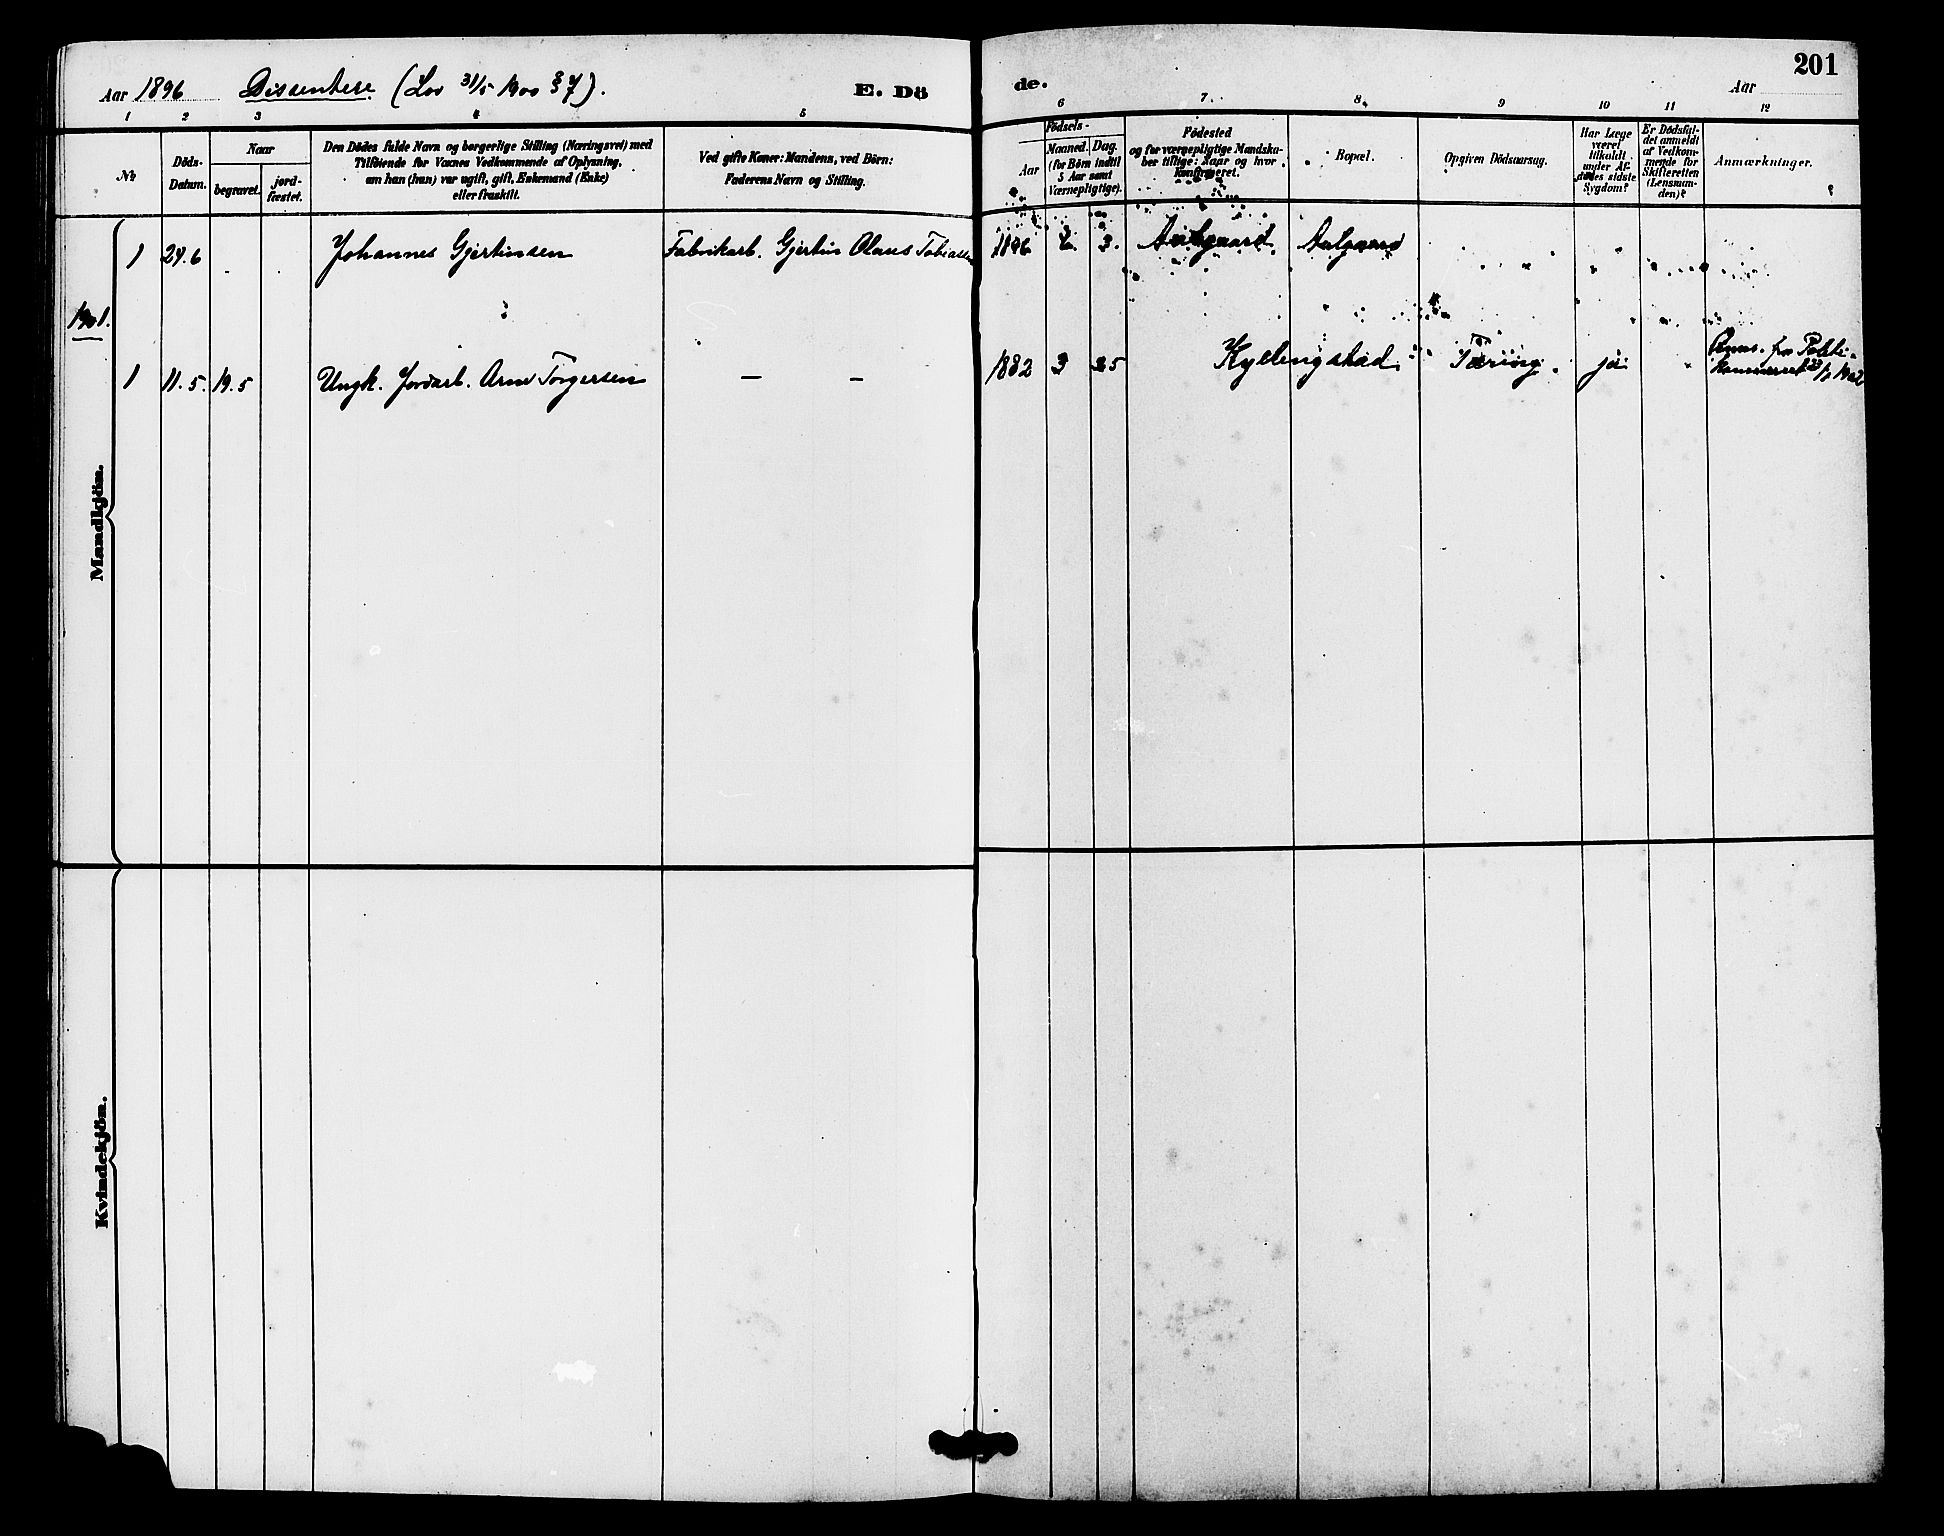 201
Aar 1896 Dissentere (Lov 31/5 1900 § 7). E. Dö de. Aar
1 2 3 4 5 6 7. 8. 9 10 11 12
№
Döds-
Datum.
Naar
begravet.
jord-
fæstet.
Den Dödes fulde Navn og borgerlige Stilling (Næringsvei) med
Tilföiende for Voxnes Vedkommende af Oplysning,
om han (hun) var ugift, gift, Enkemand (Enke)
eller fraskilt.
Ved gifte Koner: Mandens, ved Börn:
Faderens Navn og Stilling.
Födsels-
Aar
Maaned. Dag.
(for Börn indtil
5 Aar samt
Værnepligtige).
Födested
og for værnepligtige Mandska-
ber tillige: Naar og hvor
konfirmeret.
Bopæl.
Opgiven Dödsaarsag.
Har Læge
været
tilkaldt
under Af-
dödes sidste
Sygdom?
Er Dödsfal-
det anmeldt
af Vedkom-
mende for
Skifteretten
(Lensman-
den)?
Anmærkninger.
Mandkjön.
1 24.6 Johannes Gjertinsen Fabrikarb. Gjertin Olaus Tobiassen 1896 3. Aalgaard Aalgaard
1901.
1 11.5. 19.5 Ungk. Jordarb. Arne Torgersen — — 1882 3 25 Kyllingstad Tæring. ja fra Politi-
1902
Kvindekjön.